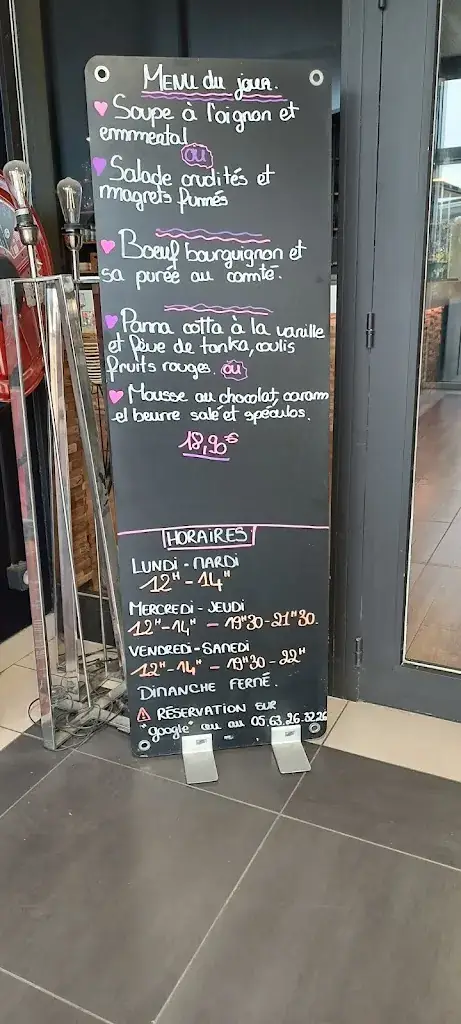 MENU du jour.
Soupe à l'oignon et
emmental
ou
Salade crudités et
magrets fumés
Boeuf bourguignon et
sa purée au comté.
Panna cotta à la vanille
et fève de tonka, coulis
fruits rouges. ou
Mousse au chocolat, caram
el beurre salé et spéculos.
18,90€
HORAIRES
LUNDI - MARDI
12H - 14H
MERCREDI - JEUDI
12H-14H - 19H30-21H30.
VENDREDI - SAMEDI
12H-14H - 19H30-22H
DIMANCHE FERMÉ.
RÉSERVATION SUR
"google" ou au 05.63.26.32.26